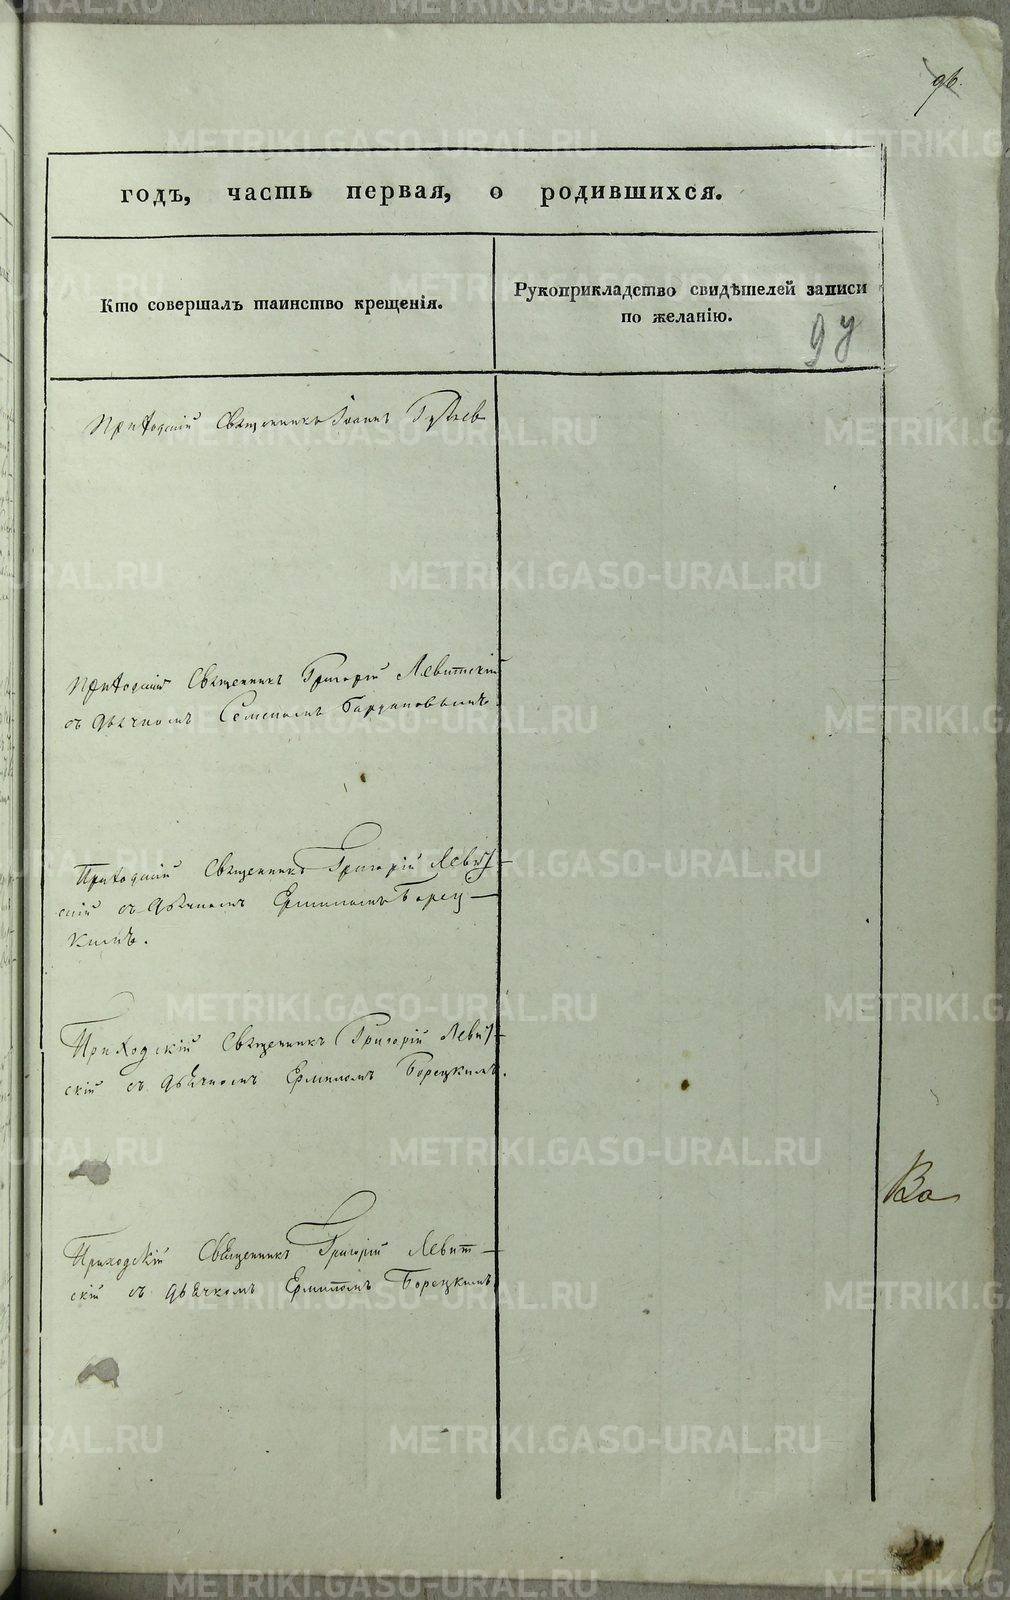 96.
годъ, часть первая, о родившихся.
Кто совершалъ таинство крещенія.
Рукоприкладство свидѣтелей записи
по желанію.
Приходскій Священникъ Іоаннъ
Приходскій Священникъ Григорій Левитскій
съ дьячкомъ Семеномъ
Приходскій Священникъ Григорій Левит-
скій съ дьячкомъ Ермиломъ Борец-
кимъ.
Приходскій Священникъ Григорій Левит-
скій съ дьячкомъ Ермиломъ Борецкимъ.
Во
Приходскій Священникъ Григорій Левит-
скій съ дьячкомъ Ермиломъ Борецкимъ
METRIKI.GASO-URAL.RU